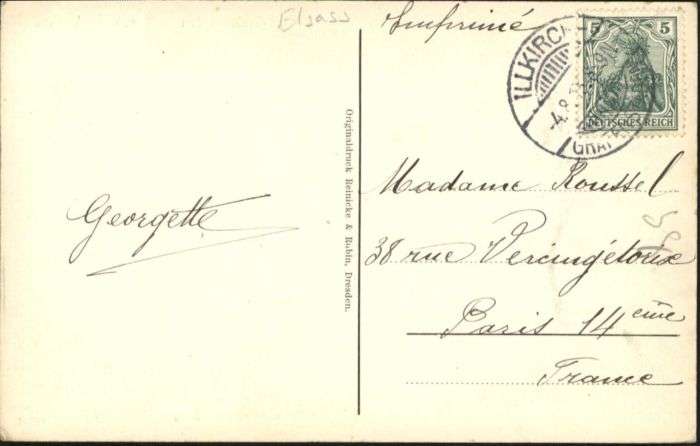 Elsass
Imprimé
5 5
DEUTSCHES REICH
ILLKIRCH-
GRAF
-4.8.
Originaldruck Reinicke & Rubin, Dresden.
Georgette
Madame Roussel
38 rue Vercingétorix
Paris 14eme
France